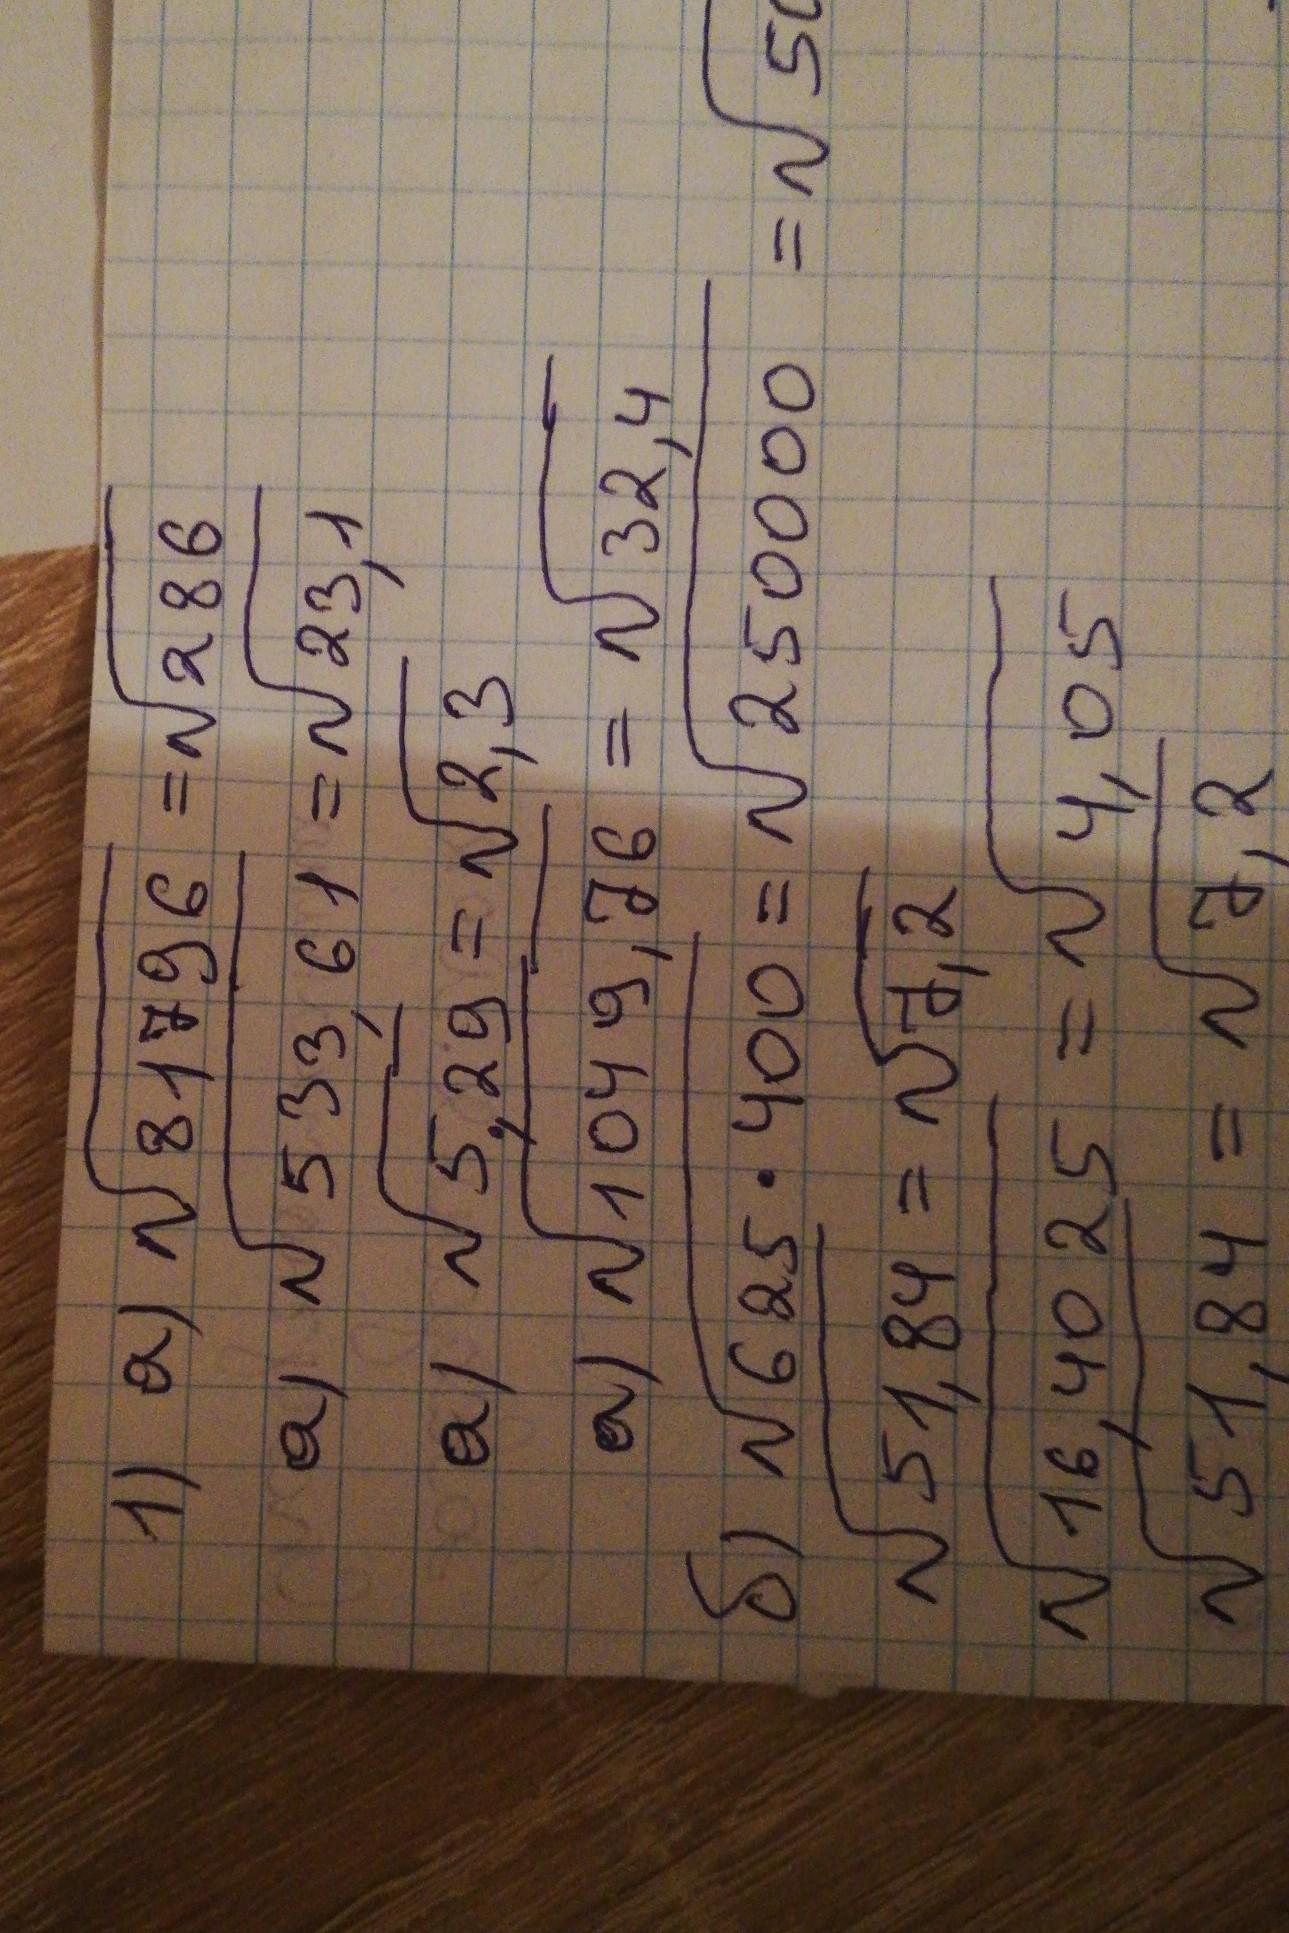 1) а) √81796 = √286
а) √533,61 = √23,1
а) √5,29 = √2,3
а) √1049,76 = √32,4
б) √625·400 = √250000 = √50
√51,84 = √7,2
√16,4025 = √4,05
√51,84 = √7,2